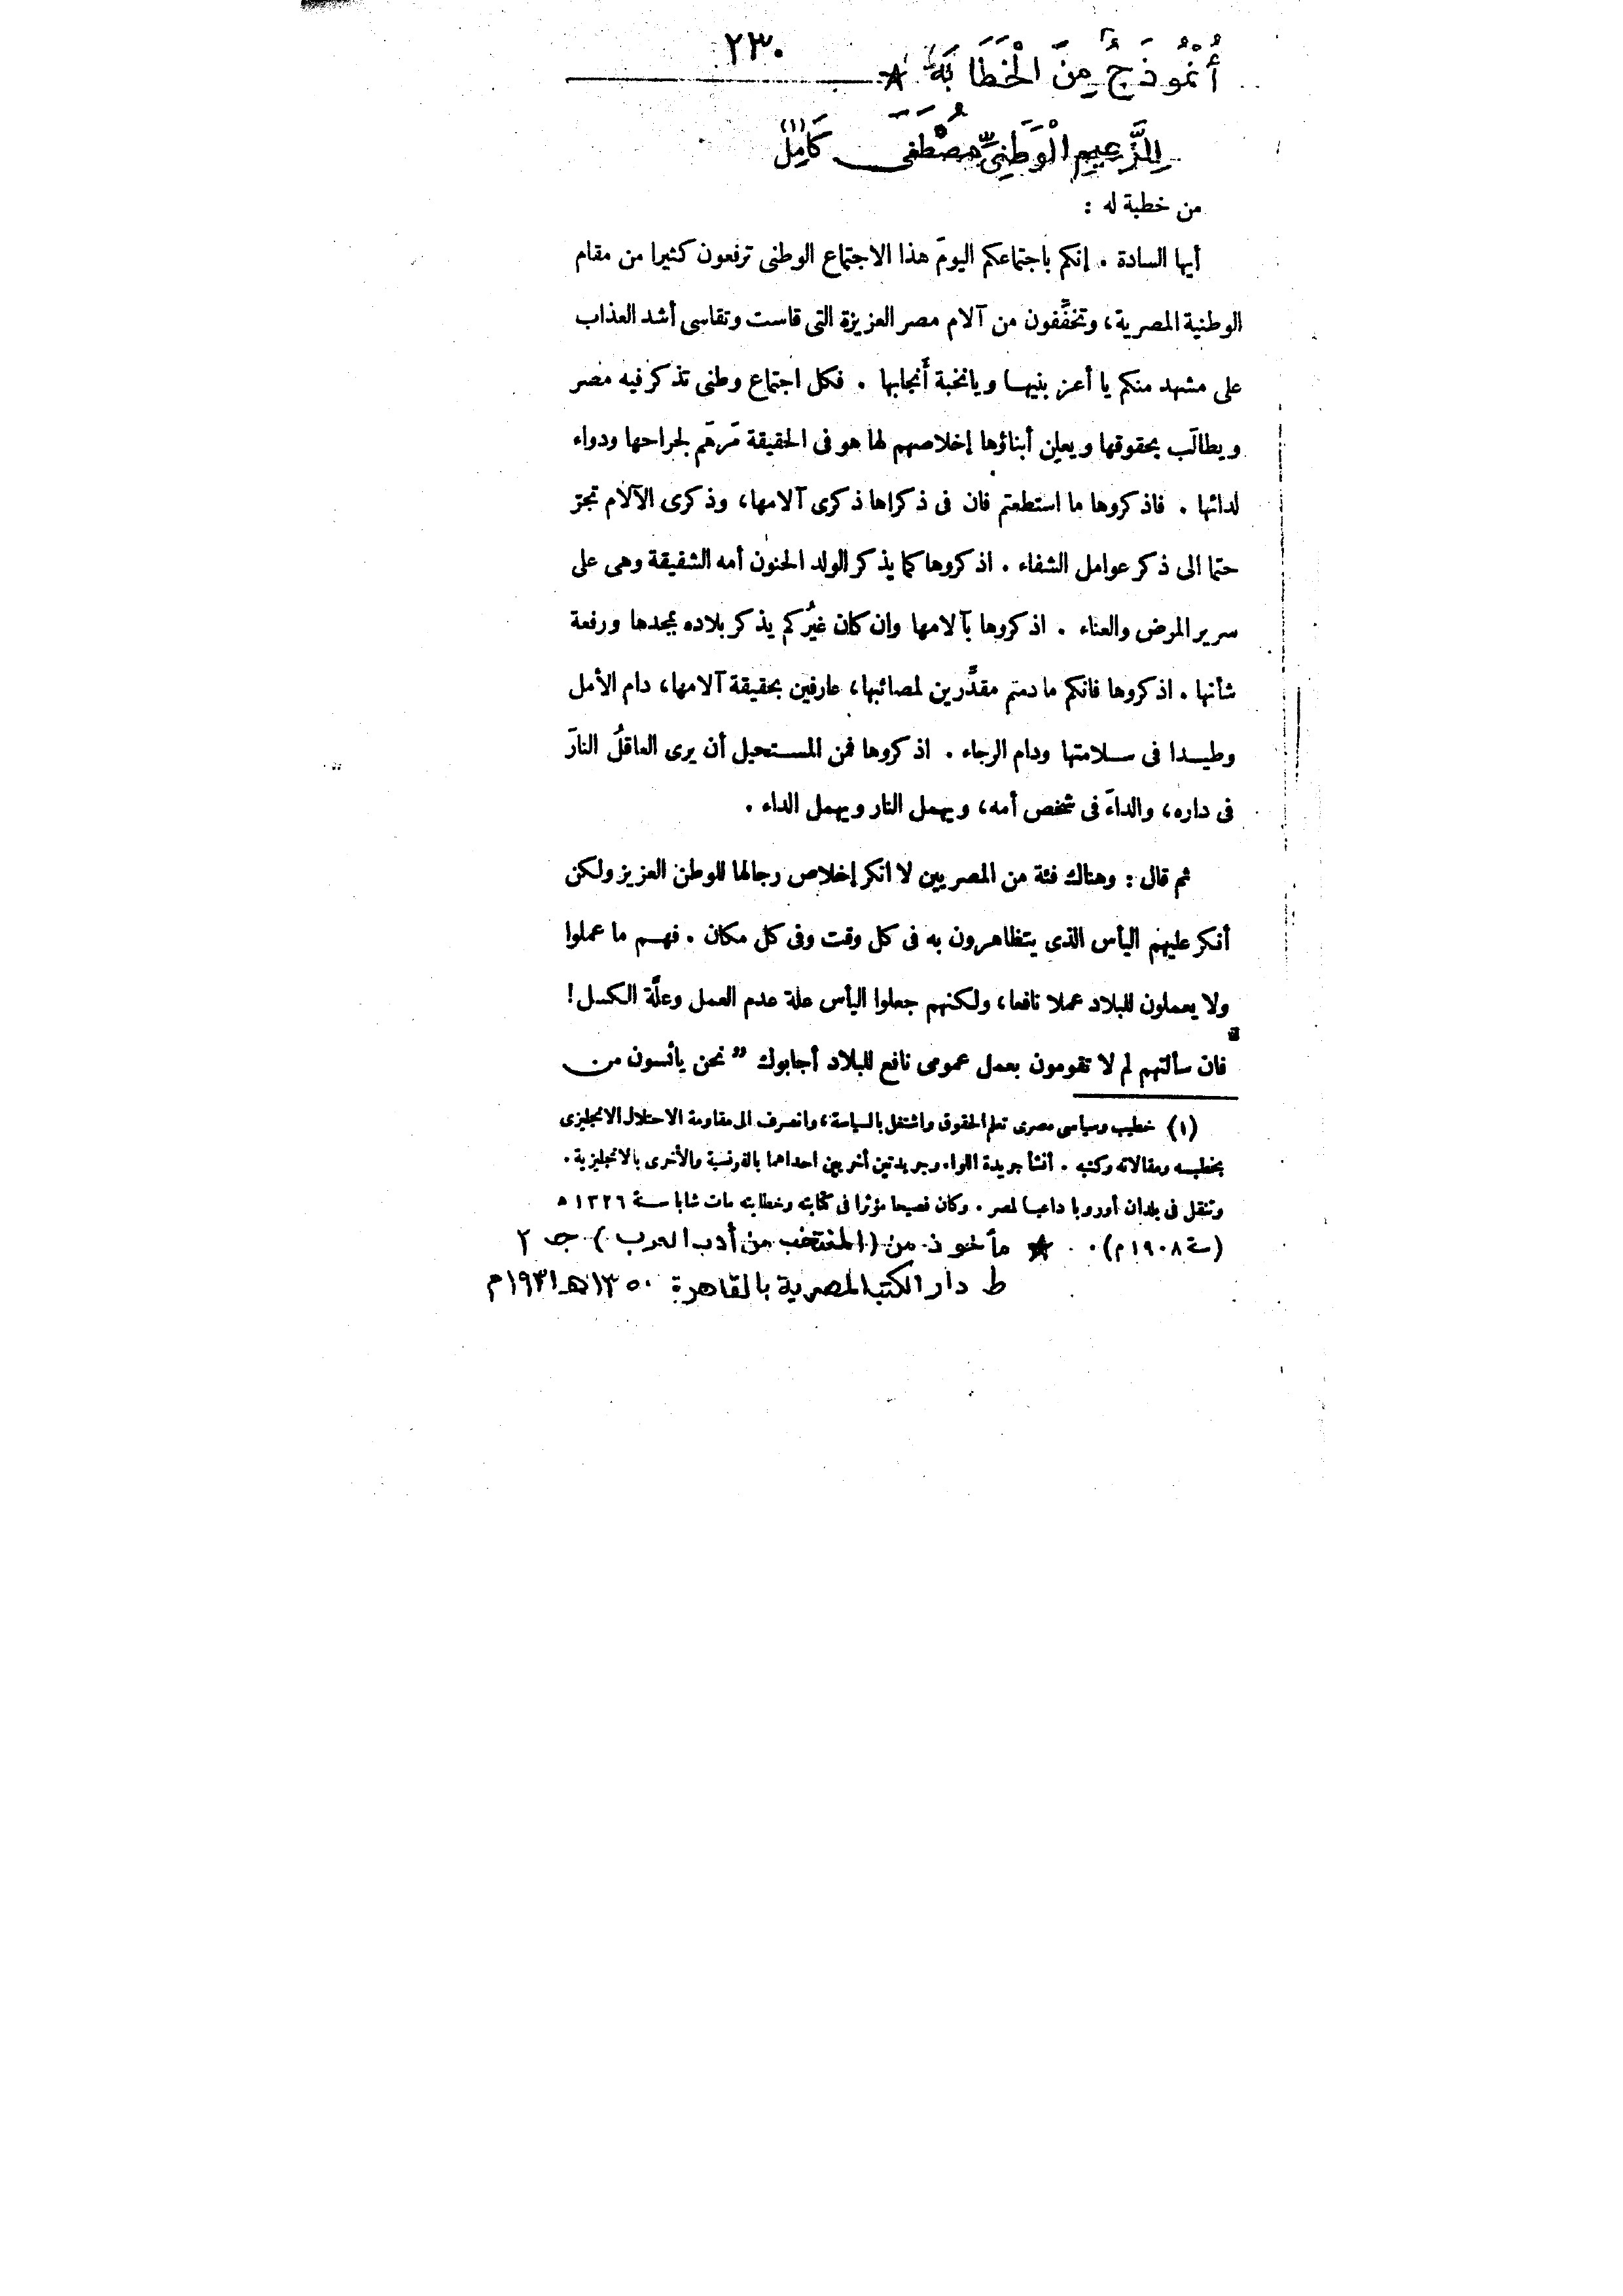 ٢٣٠
أُنْمُوذَجٌ مِنَ الْخَطَابَةِ ★
لِلزَّعِيمِ الْوَطَنِىِّ مُصْطَفَى كَامِل (١)
من خطبة له :
أيها السادة . إنكم باجتماعكم اليومَ هذا الاجتماع الوطنى ترفعون كثيرا من مقام
الوطنية المصرية، وتخفِّفون من آلام مصر العزيزة التى قاست وتقاسى أشد العذاب
على مشهد منكم يا أعز بنيها ويا نخبة أنجابها . فكل اجتماع وطنى تذكر فيه مصر
ويطالَب بحقوقها ويعلِن أبناؤها إخلاصهم لها هو فى الحقيقة مَرهَم لجراحها ودواء
لدائها . فاذكروها ما استطعتم فان فى ذكراها ذكرى آلامها، وذكرى الآلام تجرّ
حتما الى ذكر عوامل الشفاء . اذكروها كما يذكر الولد الحنون أمه الشفيقة وهى على
سرير المرض والعناء . اذكروها بآلامها وان كان غيرُكم يذكر بلاده بمجدها ورفعة
شأنها . اذكروها فانكم ما دمتم مقدِّرين لمصائبها، عارفين بحقيقة آلامها، دام الأمل
وطيدا فى سلامتها ودام الرجاء . اذكروها فمن المستحيل أن يرى العاقلُ النارَ
فى داره، والداءَ فى شخص أمه، ويهمل النار ويهمل الداء .
ثم قال : وهناك فئة من المصريين لا انكر إخلاص رجالها للوطن العزيز ولكن
أنكر عليهم اليأس الذى يتظاهرون به فى كل وقت وفى كل مكان . فهم ما عملوا
ولا يعملون للبلاد عملا نافعا، ولكنهم جعلوا اليأس علة عدم العمل وعلَّة الكسل !
فان سألتهم لم لا تقومون بعمل عمومى نافع للبلاد أجابوك ” نحن يائسون من
(١) خطيب وسياسى مصرى تعلم الحقوق واشتغل بالسياسة، وانصرف الى مقاومة الاحتلال الانجليزى
بخطبه ومقالاته وكتبه . أنشأ جريدة اللواء وجريدتين أخريين احداهما بالفرنسية والأخرى بالانجليزية .
وتنقل فى بلدان أوروبا داعيا لمصر . وكان فصيحا مؤثرا فى كتابته وخطابته مات شابا سنة ١٣٢٦ ه
(سنة ١٩٠٨ م) . ★ مأخوذ من (المنتخب من أدب العرب) جـ ٢
ط دار الكتب المصرية بالقاهرة ١٣٥٠هـ ١٩٣١م